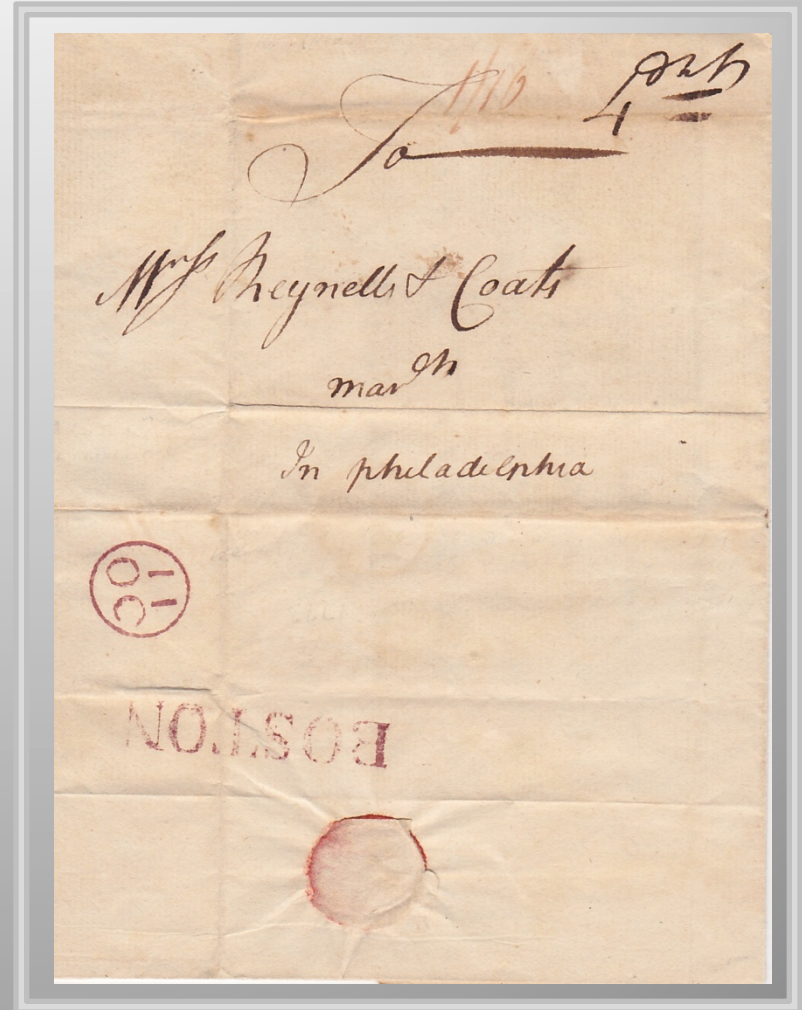 4
To
Mrss Reynells & Coats
In philadelphia
11
OC
BOSTON